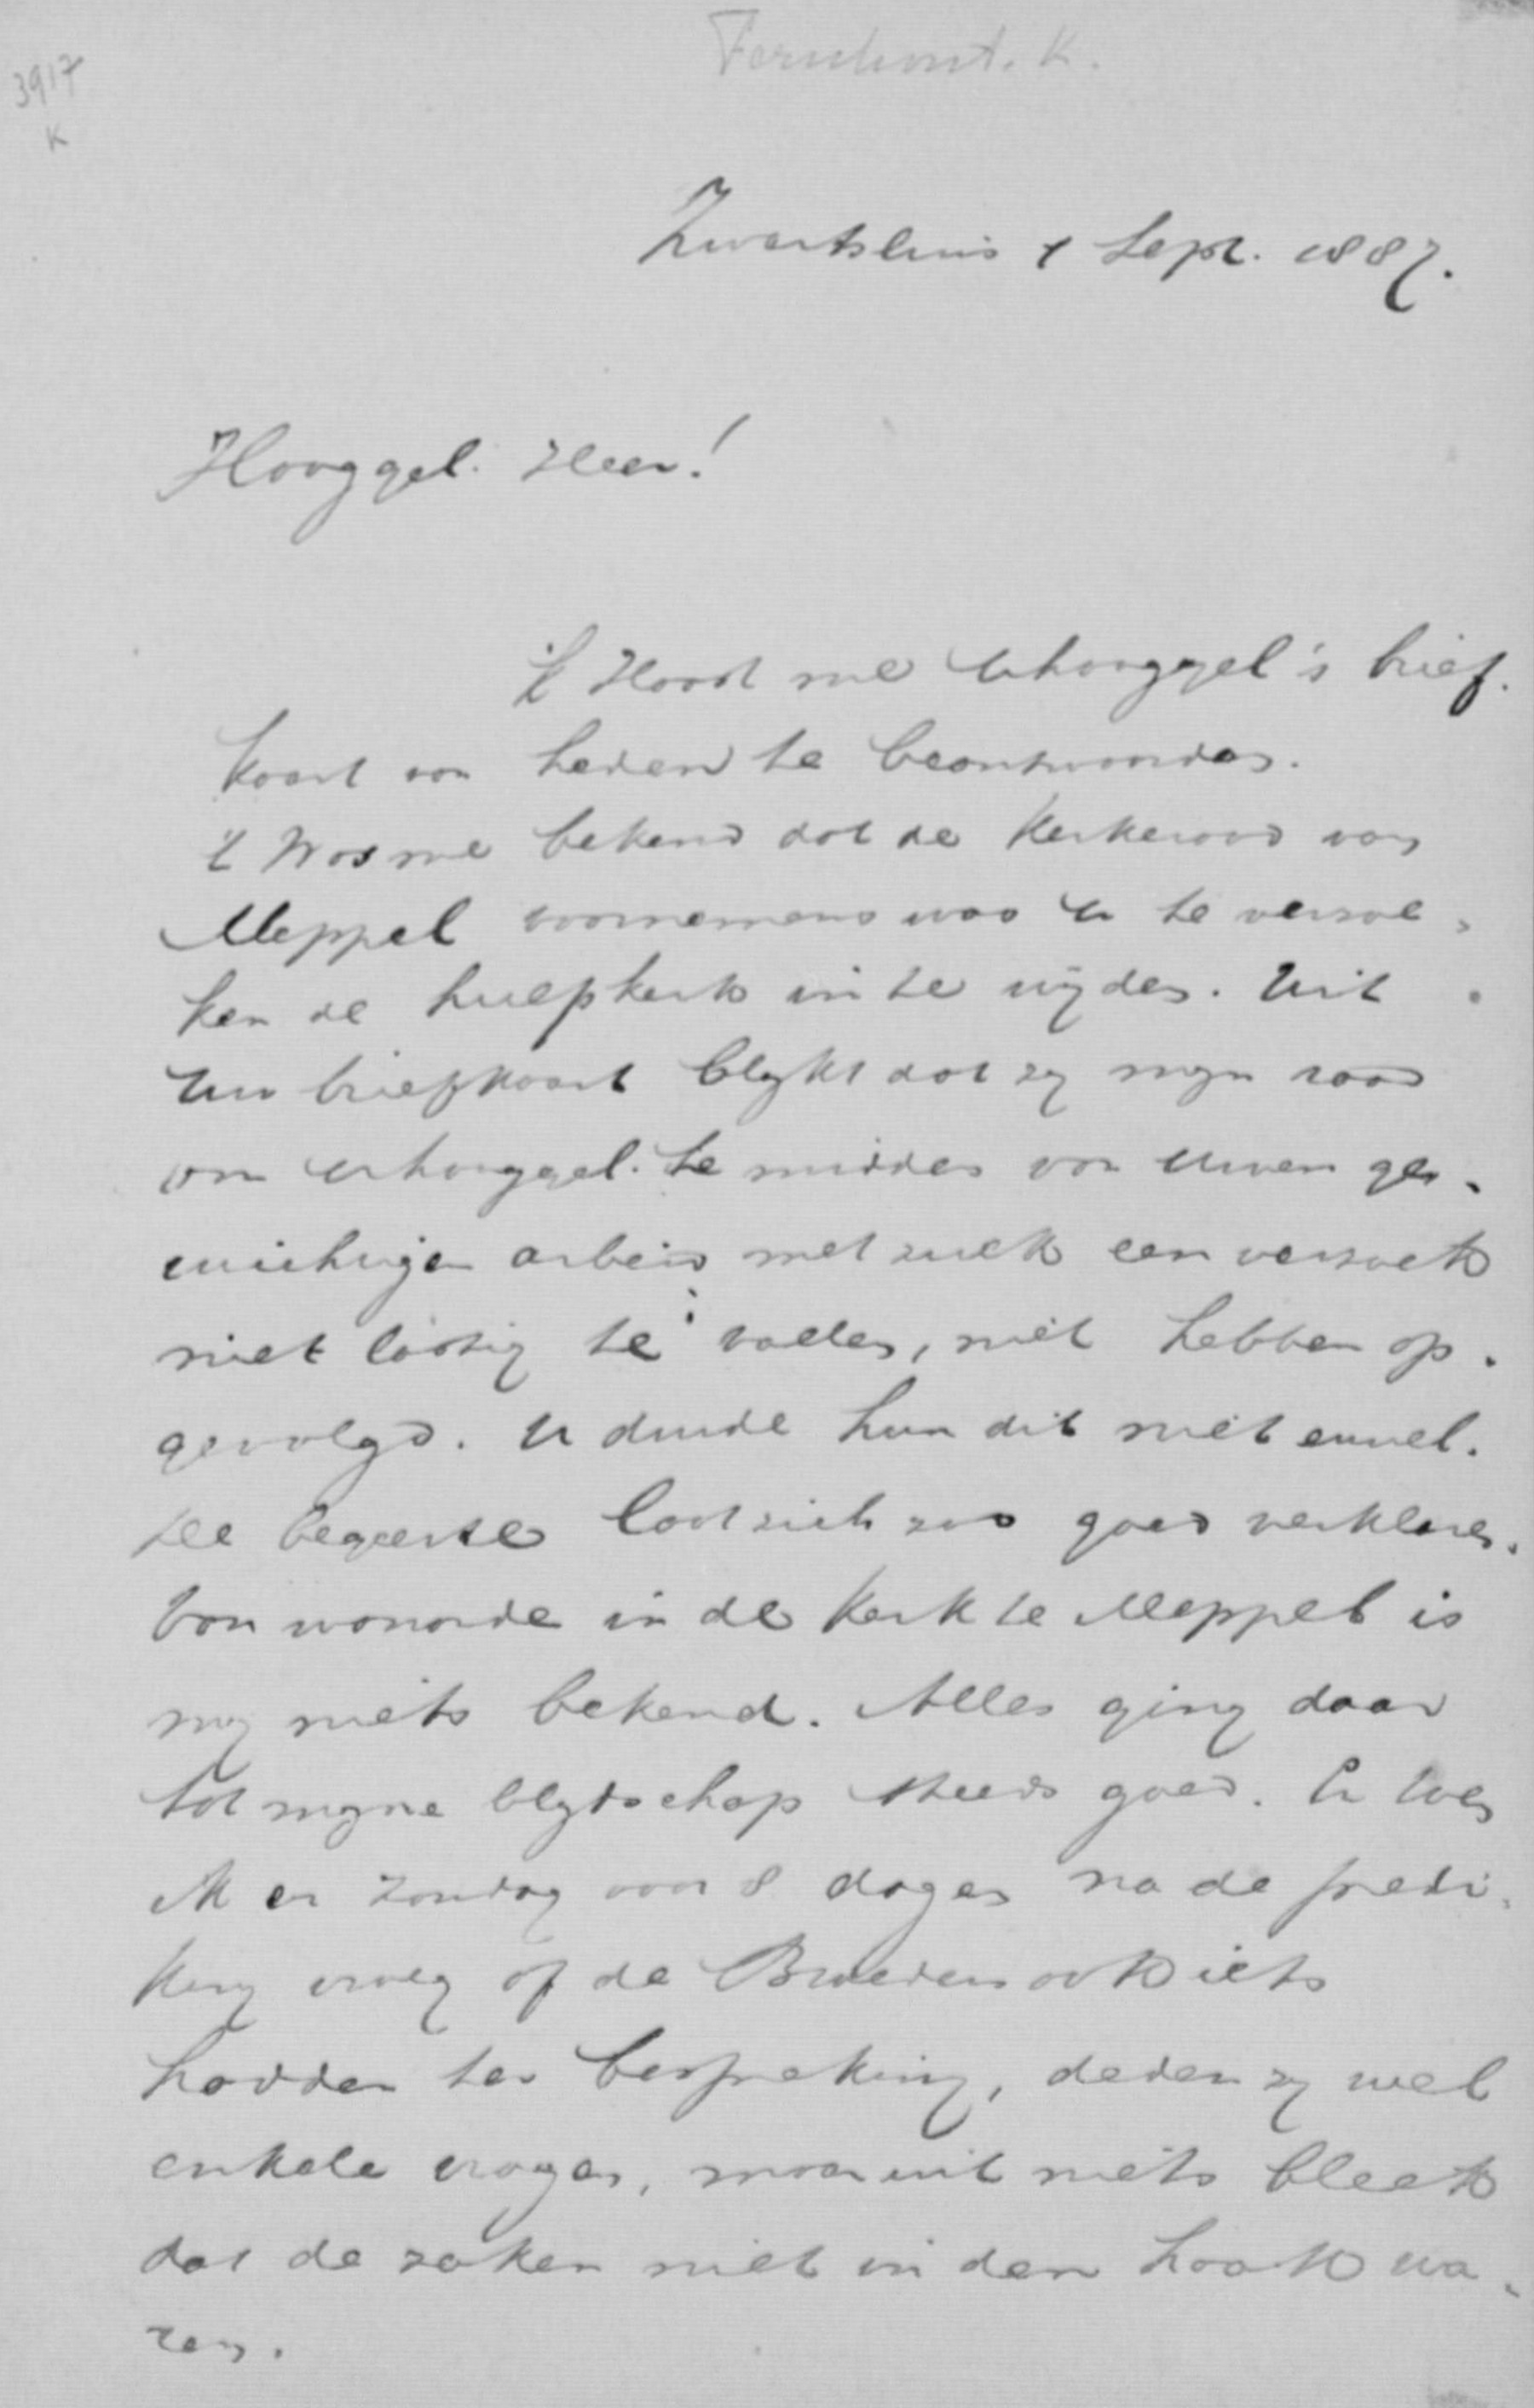 Fernhout. K.
3917
K
Zwartsluis 1 Sept. 1887.
Hooggel. Heer!
't Staat me Uhooggel's brief-
kaart van heden te beantwoorden.
't Was me bekend dat de Kerkeraad van
Meppel voornemens was U te verzoe-
ken de hulpkerk in te wijden. Uit
Uw briefkaart blykt dat zy myn raad
om Uhooggel. te midden van Uwen ge-
wichtigen arbeid met zulk een verzoek
niet lastig te vallen, niet hebben op-
gevolgd. U duide hun dit niet euvel.
De begeerte laat zich zoo goed verklaren.
Van wanorde in de Kerk te Meppel is
my niets bekend. Alles ging daar
tot myne blydschap steeds goed. En toen
ik er Zondag voor 8 dagen na de predi-
king vroeg of de Broeders ook iets
hadden ter bespreking, deden zy wel
enkele vragen, waaruit niets bleek
dat de zaken niet in den haak wa-
ren.